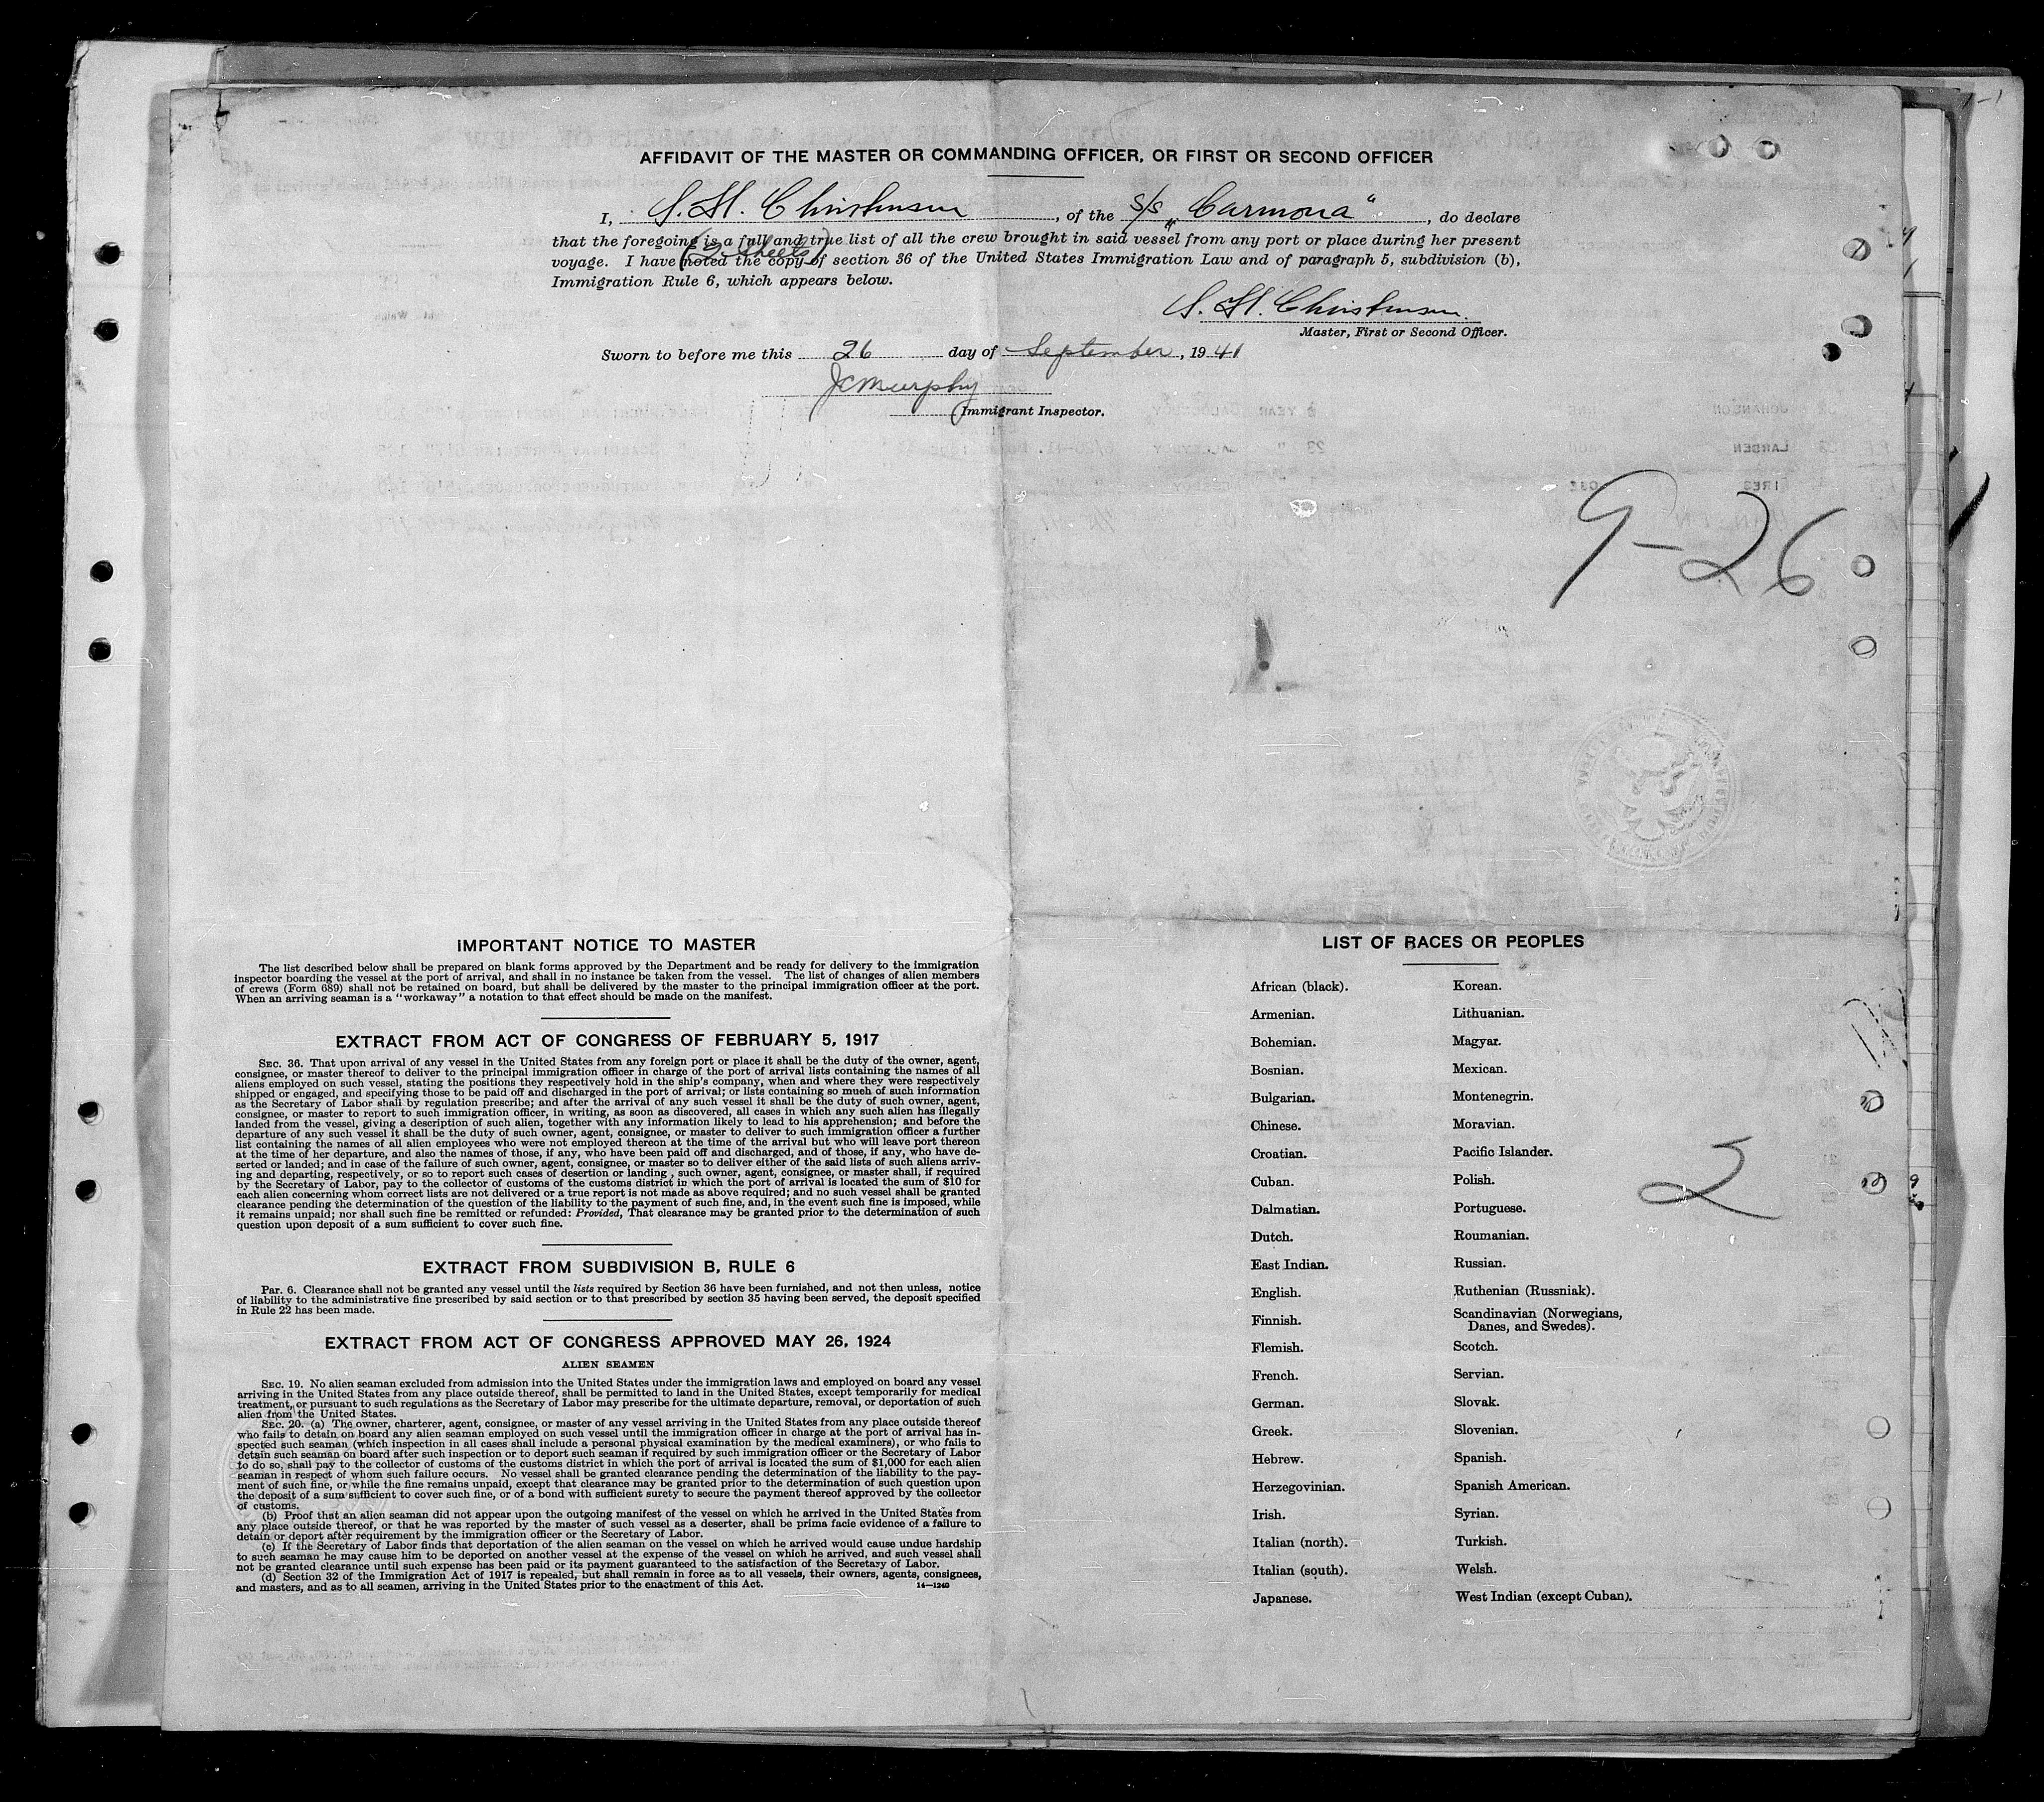 AFFIDAVIT OF THE MASTER OR COMMANDING OFFICER, OR FIRST OR SECOND OFFICER
I, S. H. Christensen, of the S/S „Carmona“, do declare
that the foregoing is a full and true list of all the crew brought in said vessel from any port or place during her present
(2 sheets)
voyage. I have noted the copy of section 36 of the United States Immigration Law and of paragraph 5, subdivision (b),
Immigration Rule 6, which appears below.
S. H. Christensen.
Master, First or Second Officer.
Sworn to before me this 26 day of September, 1941
JCMurphy
Immigrant Inspector.
9-26
IMPORTANT NOTICE TO MASTER
The list described below shall be prepared on blank forms approved by the Department and be ready for delivery to the immigration
inspector boarding the vessel at the port of arrival, and shall in no instance be taken from the vessel. The list of changes of alien members
of crews (Form 689) shall not be retained on board, but shall be delivered by the master to the principal immigration officer at the port.
When an arriving seaman is a "workaway" a notation to that effect should be made on the manifest.
EXTRACT FROM ACT OF CONGRESS OF FEBRUARY 5, 1917
SEC. 36. That upon arrival of any vessel in the United States from any foreign port or place it shall be the duty of the owner, agent,
consignee, or master thereof to deliver to the principal immigration officer in charge of the port of arrival lists containing the names of all
aliens employed on such vessel, stating the positions they respectively hold in the ship's company, when and where they were respectively
shipped or engaged, and specifying those to be paid off and discharged in the port of arrival; or lists containing so much of such information
as the Secretary of Labor shall by regulation prescribe; and after the arrival of any such vessel it shall be the duty of such owner, agent,
consignee, or master to report to such immigration officer, in writing, as soon as discovered, all cases in which any such alien has illegally
landed from the vessel, giving a description of such alien, together with any information likely to lead to his apprehension; and before the
departure of any such vessel it shall be the duty of such owner, agent, consignee, or master to deliver to such immigration officer a further
list containing the names of all alien employees who were not employed thereon at the time of the arrival but who will leave port thereon
at the time of her departure, and also the names of those, if any, who have been paid off and discharged, and of those, if any, who have de-
serted or landed; and in case of the failure of such owner, agent, consignee, or master so to deliver either of the said lists of such aliens arriv-
ing and departing, respectively, or so to report such cases of desertion or landing, such owner, agent, consignee, or master shall, if required
by the Secretary of Labor, pay to the collector of customs of the customs district in which the port of arrival is located the sum of $10 for
each alien concerning whom correct lists are not delivered or a true report is not made as above required; and no such vessel shall be granted
clearance pending the determination of the question of the liability to the payment of such fine, and, in the event such fine is imposed, while
it remains unpaid; nor shall such fine be remitted or refunded: Provided, That clearance may be granted prior to the determination of such
question upon deposit of a sum sufficient to cover such fine.
EXTRACT FROM SUBDIVISION B, RULE 6
PAR. 6. Clearance shall not be granted any vessel until the lists required by Section 36 have been furnished, and not then unless, notice
of liability to the administrative fine prescribed by said section or to that prescribed by section 35 having been served, the deposit specified
in Rule 22 has been made.
EXTRACT FROM ACT OF CONGRESS APPROVED MAY 26, 1924
ALIEN SEAMEN
SEC. 19. No alien seaman excluded from admission into the United States under the immigration laws and employed on board any vessel
arriving in the United States from any place outside thereof, shall be permitted to land in the United States, except temporarily for medical
treatment, or pursuant to such regulations as the Secretary of Labor may prescribe for the ultimate departure, removal, or deportation of such
alien from the United States.
SEC. 20. (a) The owner, charterer, agent, consignee, or master of any vessel arriving in the United States from any place outside thereof
who fails to detain on board any alien seaman employed on such vessel until the immigration officer in charge at the port of arrival has in-
spected such seaman (which inspection in all cases shall include a personal physical examination by the medical examiners), or who fails to
detain such seaman on board after such inspection or to deport such seaman if required by such immigration officer or the Secretary of Labor
to do so, shall pay to the collector of customs of the customs district in which the port of arrival is located the sum of $1,000 for each alien
seaman in respect of whom such failure occurs. No vessel shall be granted clearance pending the determination of the liability to the pay-
ment of such fine, or while the fine remains unpaid, except that clearance may be granted prior to the determination of such question upon
the deposit of a sum sufficient to cover such fine, or of a bond with sufficient surety to secure the payment thereof approved by the collector
of customs.
(b) Proof that an alien seaman did not appear upon the outgoing manifest of the vessel on which he arrived in the United States from
any place outside thereof, or that he was reported by the master of such vessel as a deserter, shall be prima facie evidence of a failure to
detain or deport after requirement by the immigration officer or the Secretary of Labor.
(c) If the Secretary of Labor finds that deportation of the alien seaman on the vessel on which he arrived would cause undue hardship
to such seaman he may cause him to be deported on another vessel at the expense of the vessel on which he arrived, and such vessel shall
not be granted clearance until such expense has been paid or its payment guaranteed to the satisfaction of the Secretary of Labor.
(d) Section 32 of the Immigration Act of 1917 is repealed, but shall remain in force as to all vessels, their owners, agents, consignees,
and masters, and as to all seamen, arriving in the United States prior to the enactment of this Act. 14—1240
LIST OF RACES OR PEOPLES
African (black). Korean.
Armenian. Lithuanian.
Bohemian. Magyar.
Bosnian. Mexican.
Bulgarian. Montenegrin.
Chinese. Moravian.
Croatian. Pacific Islander.
Cuban. Polish.
Dalmatian. Portuguese.
Dutch. Roumanian.
East Indian. Russian.
English. Ruthenian (Russniak).
Finnish. Scandinavian (Norwegians,
Danes, and Swedes).
Flemish. Scotch.
French. Servian.
German. Slovak.
Greek. Slovenian.
Hebrew. Spanish.
Herzegovinian. Spanish American.
Irish. Syrian.
Italian (north). Turkish.
Italian (south). Welsh.
Japanese. West Indian (except Cuban).
2